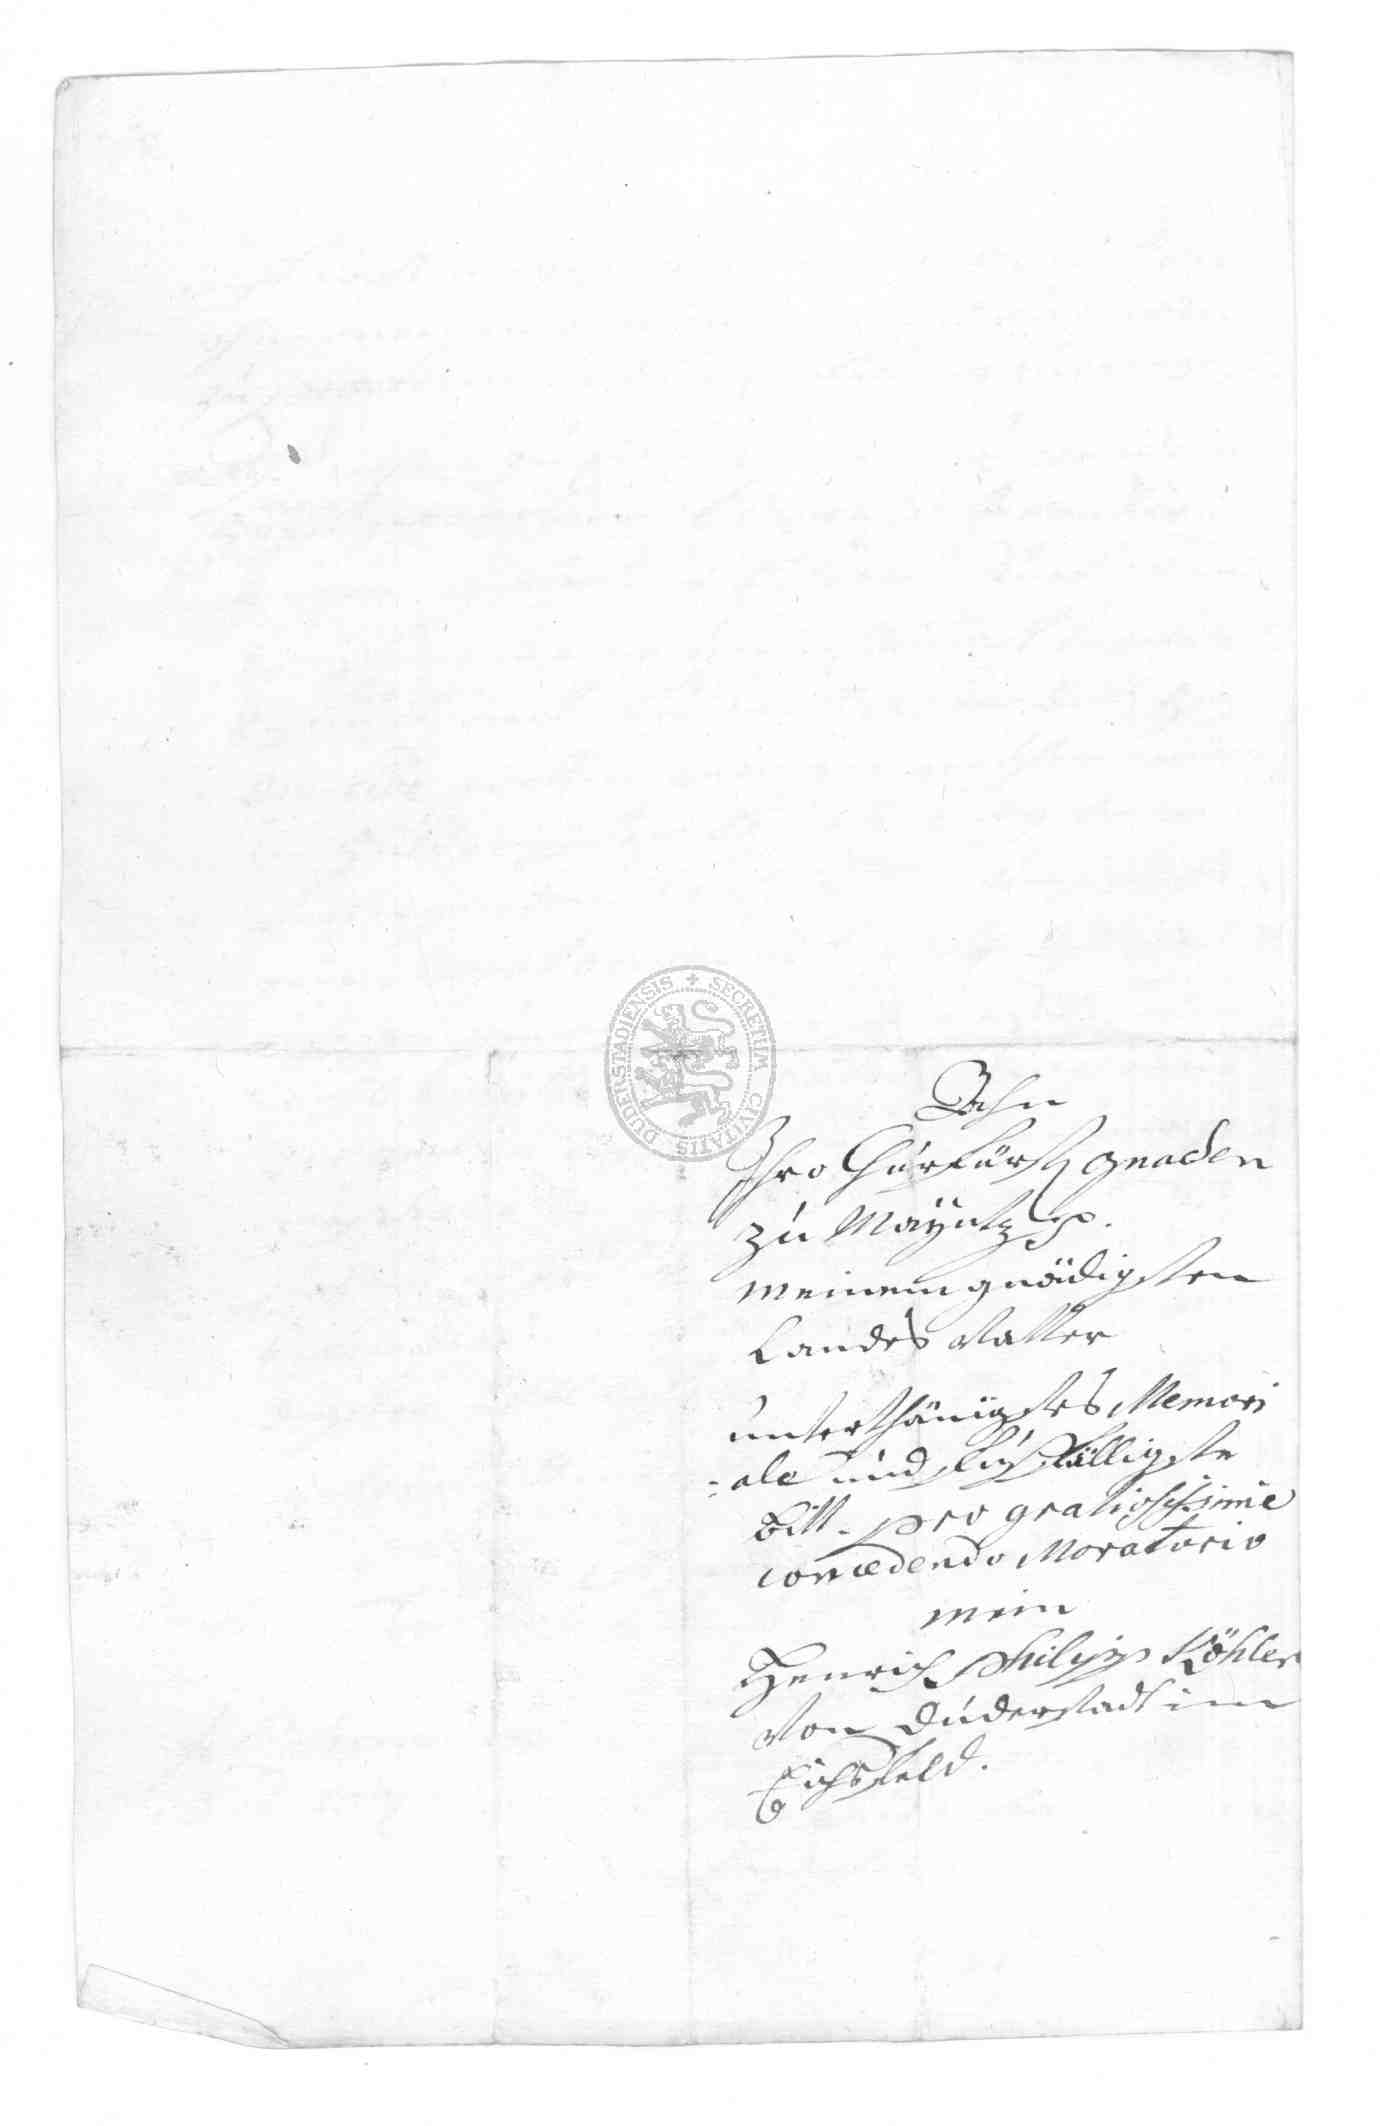 SECRETUM CIVITATIS DUDERSTADIENSIS
Ahn
Ihro Churfürstl gnaden
zu Mayntz p.
meinem gnädigsten
Landes Vatter
unterthänigstes Memori
=ale und fußfälligste
Bitt. pro gratiosissime
concedendo Moratorio
mein
Henrich Philipp Köhler
Von Duderstadt im
Eichsfeld.